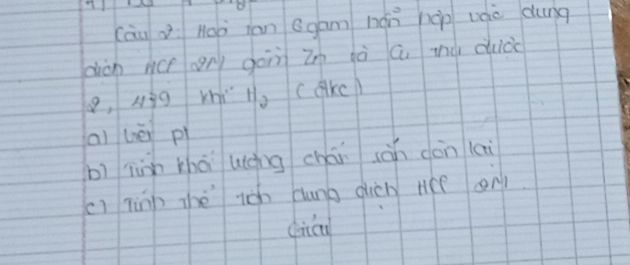 Câu 2: Hoà tan 6 gam hỗn hợp vào dung
dịch HCl 2M gồm Zn và Cu thu được
2,479 khí H2 (đkc)
a) Viết pt
b) Tính khối lượng chất rắn còn lại
c) Tính thể tích dung dịch HCl 2M
Giải